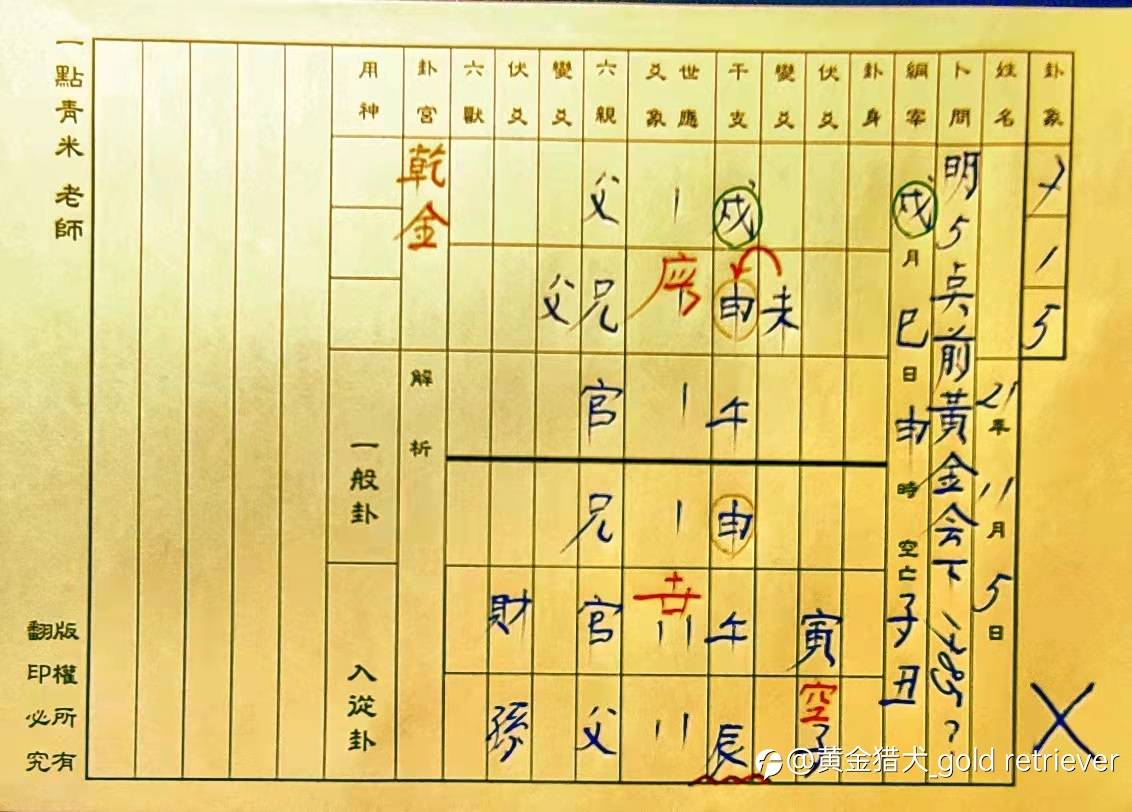 卦象 7 1 5
姓名 21年 11月 5日
卜問 明5点前黃金会下
綱宰 戌月 巳日 申時 空亡 子丑
卦身
伏爻 寅 空 子
變爻 未
干支 戌 申 午 申 午 辰
世應 爻象 應 世
六親 父 兄 官 兄 官 父
變爻 父
伏爻 財 孫
六獸
卦宮 乾金
解析
用神
一般卦
入從卦
一點青米 老師
版權所有
翻印必究
@黄金猎犬_gold retriever